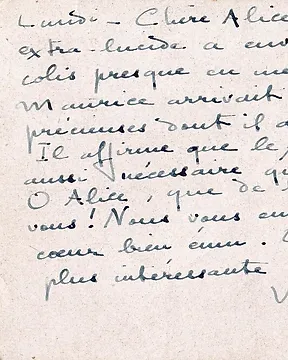 Lundi - Chère Alice
extra-lucide a env
colis presque en me
Maurice arrivait
précieuses dont il a
Il affirme que le
aussi nécessaire qu
O Alice, que de
vous! Nous vous em
cœur bien ému.
plus intéressante